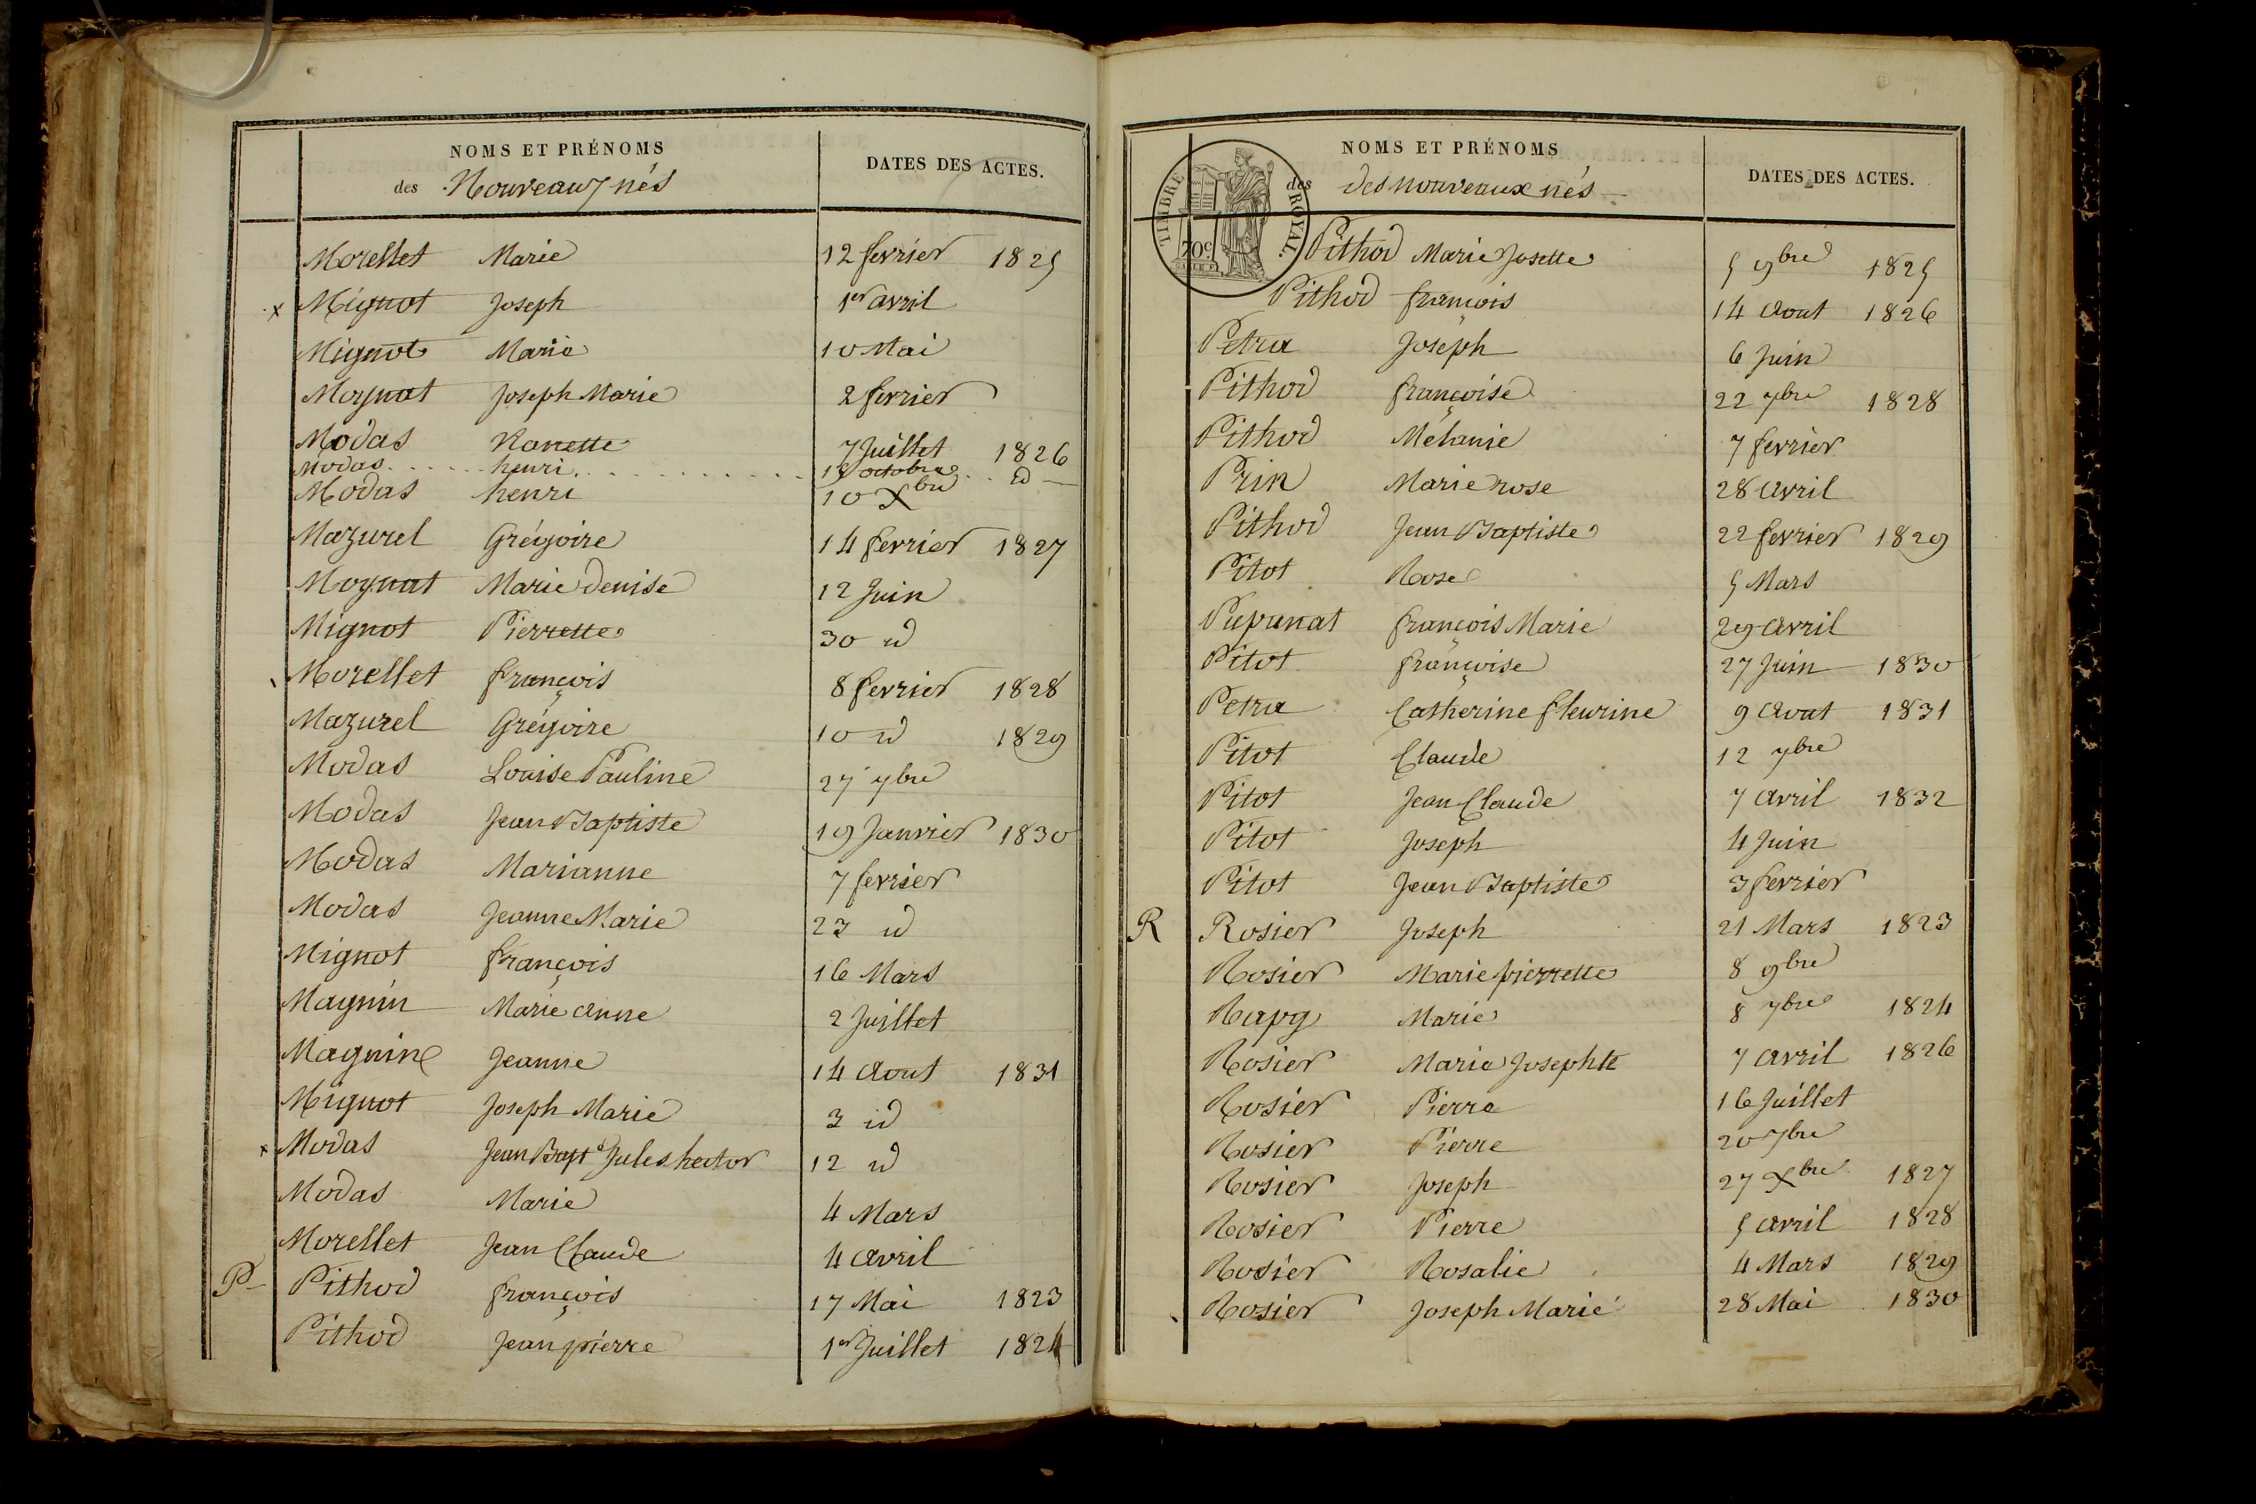 NOMS ET PRÉNOMS
des Nouveaux nés
DATES DES ACTES.
Morellet Marie 12 fevrier 1825
x Mignot Joseph 1er avril
Mignot Marie 10 Mai
Moynat Joseph Marie 2 fevrier
Modas Nanette 7 Juillet 1826
Modas henri octobre id
Modas henri 10 Xbre
Mazurel Grégoire 14 fevrier 1827
Moynat Marie Denise 12 Juin
Mignot Pierrette 30 id
Morellet françois 8 fevrier 1828
Mazurel Grégoire 10 id 1829
Modas Louise Pauline 27 7bre
Modas Jean Baptiste 19 Janvier 1830
Modas Marianne 7 fevrier
Modas Jeanne Marie 23 id
Mignot françois 16 Mars
Magnin Marie anne 2 Juillet
Magnin Jeanne 14 Aout 1831
Mignot Joseph Marie 3 id
x Modas Jean Bapte Jules hector 12 id
Modas Marie 4 Mars
Morellet Jean Claude 4 avril
P Pithod françois 17 Mai 1823
Pithod Jean pierre 1er Juillet 1824
NOMS ET PRÉNOMS
des des nouveaux nés
DATES DES ACTES.
TIMBRE ROYAL.
70c
Pithod Marie Josette 5 9bre 1825
Pithod françois 14 Aout 1826
Petra Joseph 6 Juin
Pithod françoise 22 7bre 1828
Pithod Mélanie 7 fevrier
Prin Marie rose 28 avril
Pithod Jean Baptiste 22 fevrier 1829
Pitot Rose 5 Mars
Pupunat françois Marie 29 avril
Pitot françoise 27 Juin 1830
Petra Catherine fleurine 9 Aout 1831
Pitot Claude 12 7bre
Pitot Jean Claude 7 avril 1832
Pitot Joseph 4 Juin
Pitot Jean Baptiste 3 fevrier
R Rosier Joseph 21 Mars 1823
Rosier Marie pierrette 8 9bre
Rapy Marie 8 7bre 1824
Rosier Marie Josephte 7 avril 1826
Rosier Pierre 16 Juillet
Rosier Pierre 20 7bre
Rosier Joseph 27 Xbre 1827
Rosier Pierre 5 avril 1828
Rosier Rosalie 4 Mars 1829
Rosier Joseph Marie 28 Mai 1830